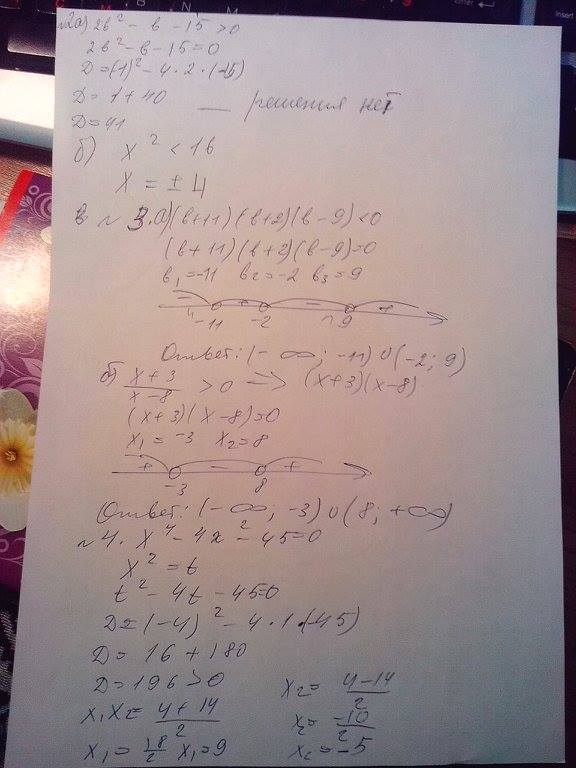 №2a) 2в² - в - 15 > 0
2в² - в - 15 = 0
D = (-1)² - 4 · 2 · (-15)
D = 1 + 40 — решения нет
D = 41
б) x² < 16
x = ± 4
в №3. а) (в+11)(в+2)(в-9) < 0
(в+11)(в+2)(в-9) = 0
в₁ = -11 в₂ = -2 в₃ = 9
- + - +
-11 -2 9
Ответ: (-∞; -11) ∪ (-2; 9)
б) x+3 / x-8 > 0 => (x+3)(x-8)
(x+3)(x-8) = 0
x₁ = -3 x₂ = 8
+ - +
-3 8
Ответ: (-∞; -3) ∪ (8; +∞)
№4. x⁴ - 4x² - 45 = 0
x² = t
t² - 4t - 45 = 0
D = (-4)² - 4 · 1 · (-45)
D = 16 + 180
D = 196 > 0
x₁x₂ = 4+14 / 2
x₁ = 18/2 x₁ = 9
x₂ = 4-14 / 2
x₂ = -10 / 2
x₂ = -5